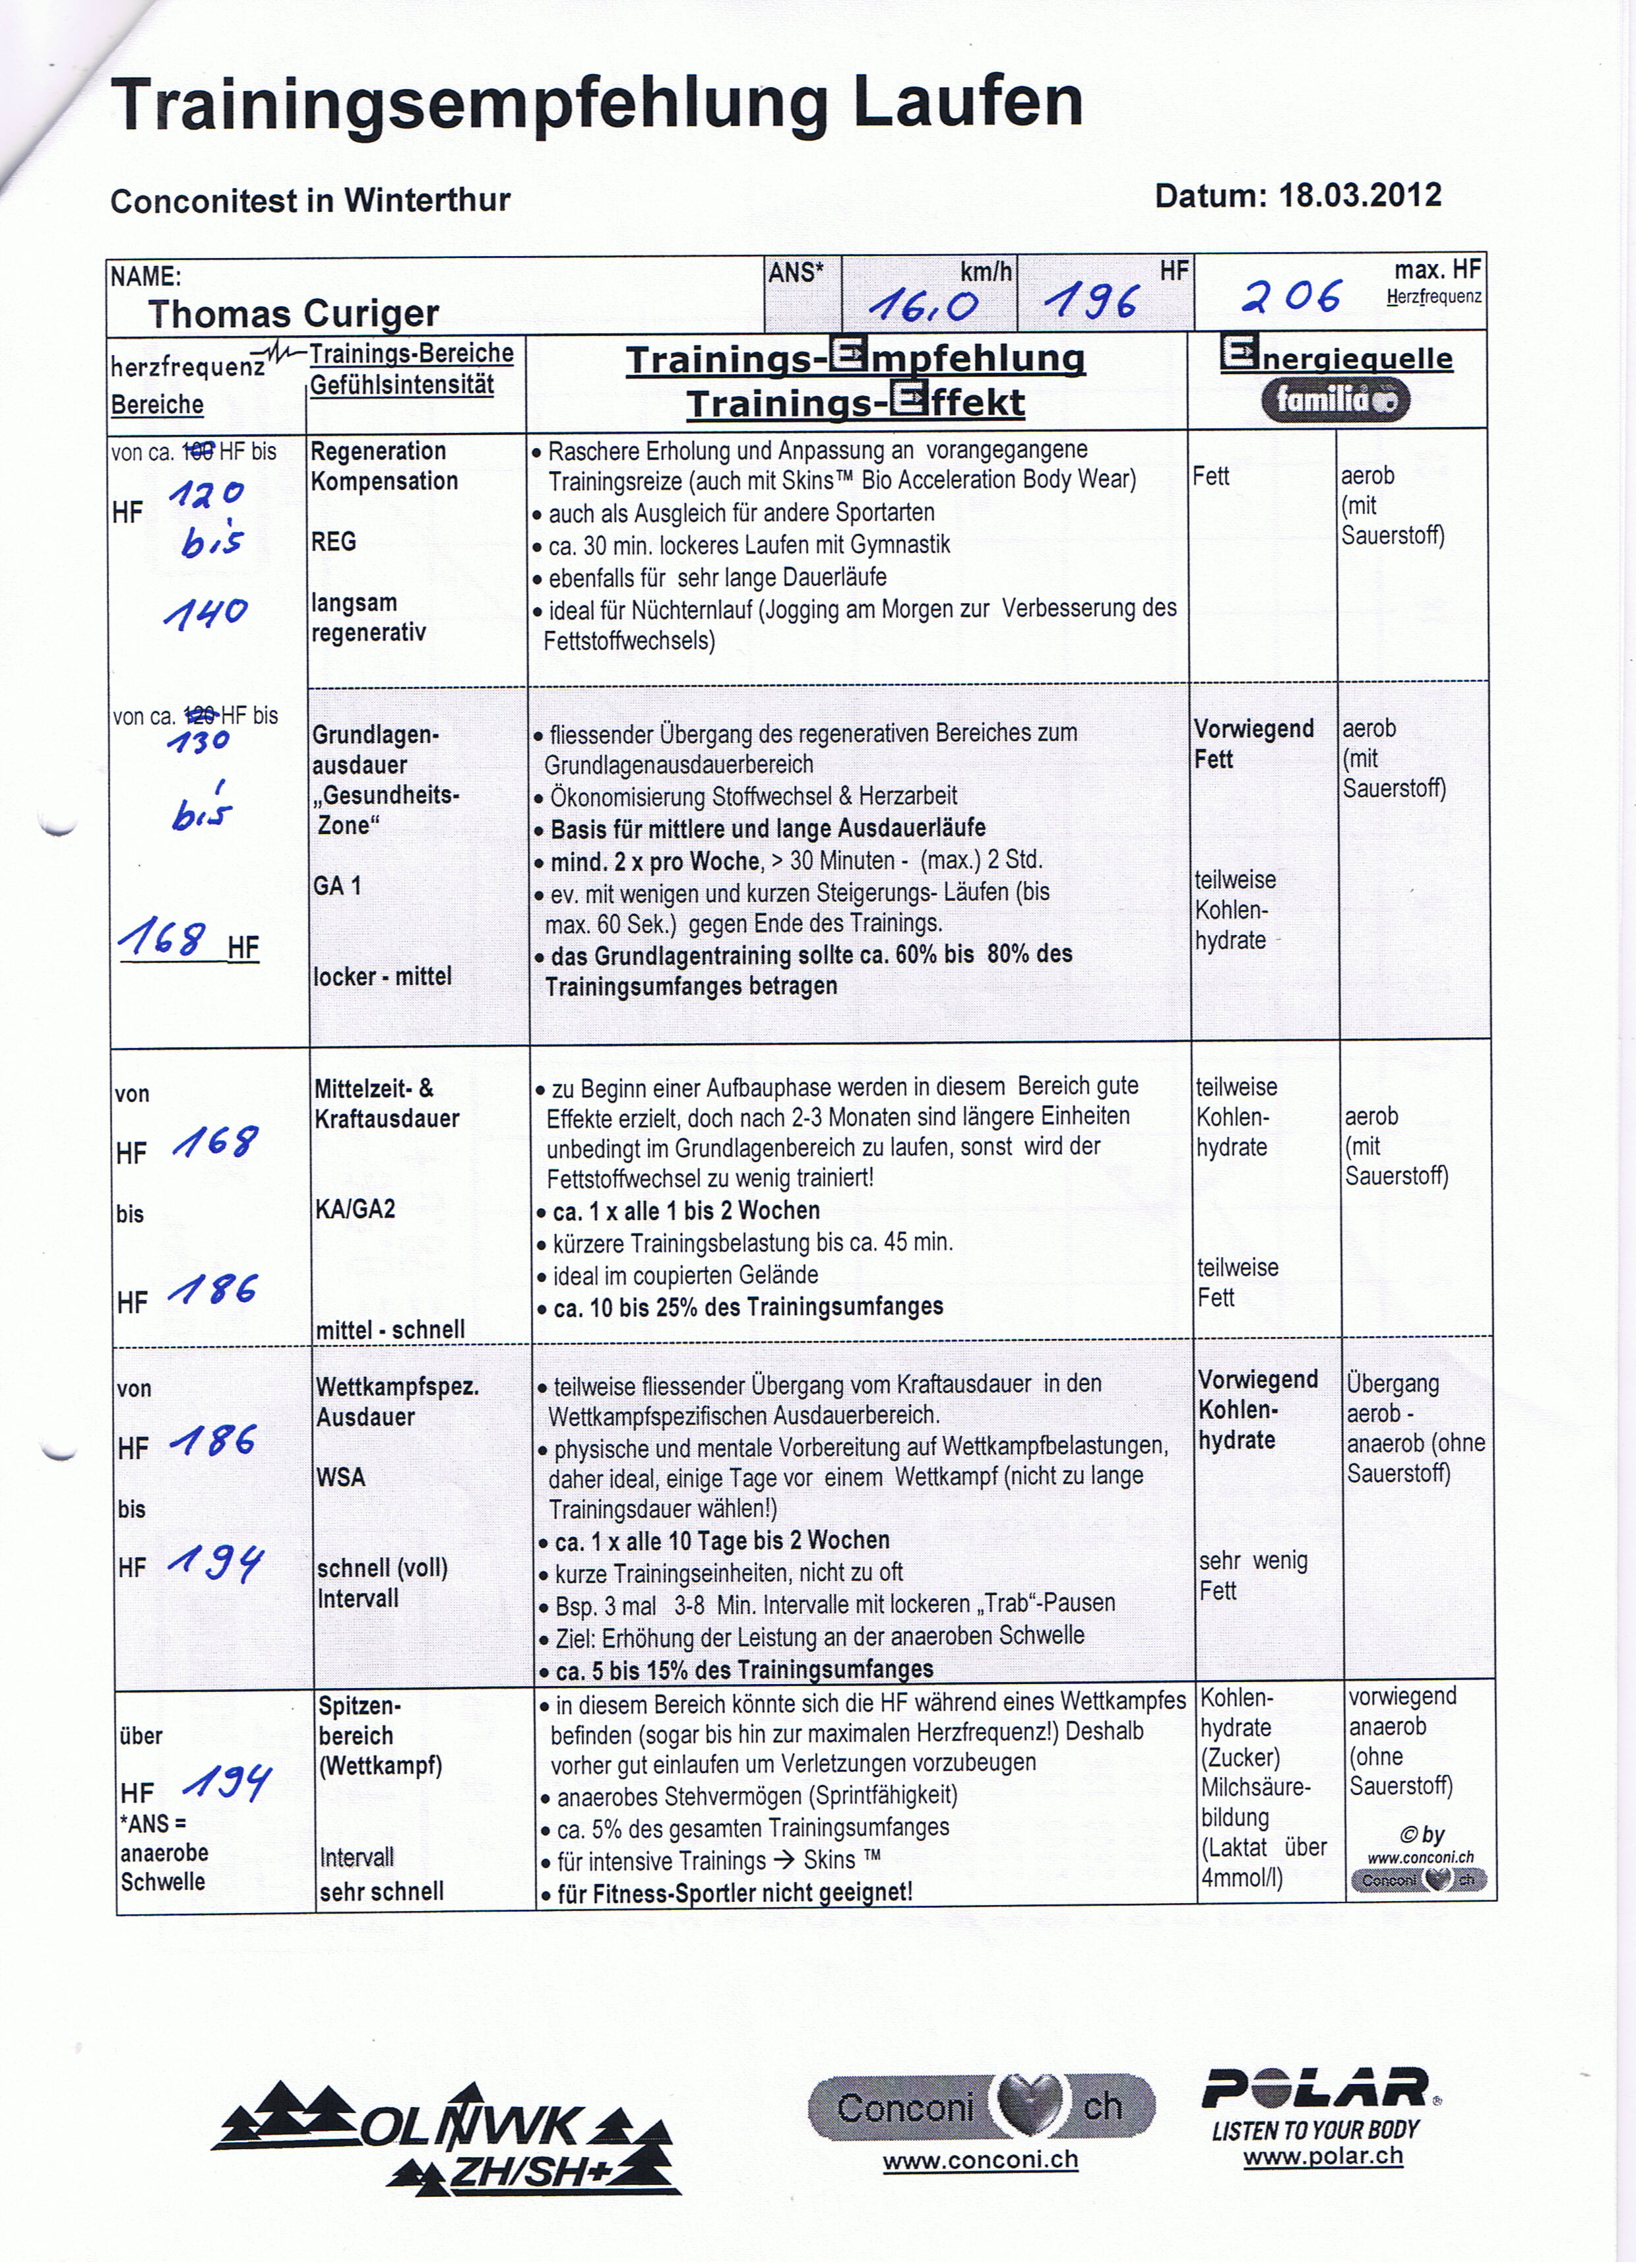 Trainingsempfehlung Laufen
Conconitest in Winterthur
Datum: 18.03.2012
NAME:
Thomas Curiger
ANS*
km/h
16,0
HF
196
max. HF
Herzfrequenz
206
herzfrequenz
Bereiche
Trainings-Bereiche
Gefühlsintensität
Trainings-Empfehlung
Trainings-Effekt
Energiequelle
familia
von ca. 100 HF bis
HF 120
bis
140
Regeneration
Kompensation
REG
langsam
regenerativ
• Raschere Erholung und Anpassung an vorangegangene
Trainingsreize (auch mit Skins™ Bio Acceleration Body Wear)
• auch als Ausgleich für andere Sportarten
• ca. 30 min. lockeres Laufen mit Gymnastik
• ebenfalls für sehr lange Dauerläufe
• ideal für Nüchternlauf (Jogging am Morgen zur Verbesserung des
Fettstoffwechsels)
Fett
aerob
(mit
Sauerstoff)
von ca. 120 HF bis
130
bis
168 HF
Grundlagen-
ausdauer
„Gesundheits-
Zone“
GA 1
locker - mittel
• fliessender Übergang des regenerativen Bereiches zum
Grundlagenausdauerbereich
• Ökonomisierung Stoffwechsel & Herzarbeit
• Basis für mittlere und lange Ausdauerläufe
• mind. 2 x pro Woche, > 30 Minuten - (max.) 2 Std.
• ev. mit wenigen und kurzen Steigerungs- Läufen (bis
max. 60 Sek.) gegen Ende des Trainings.
• das Grundlagentraining sollte ca. 60% bis 80% des
Trainingsumfanges betragen
Vorwiegend
Fett
teilweise
Kohlen-
hydrate
aerob
(mit
Sauerstoff)
von
HF 168
bis
HF 186
Mittelzeit- &
Kraftausdauer
KA/GA2
mittel - schnell
• zu Beginn einer Aufbauphase werden in diesem Bereich gute
Effekte erzielt, doch nach 2-3 Monaten sind längere Einheiten
unbedingt im Grundlagenbereich zu laufen, sonst wird der
Fettstoffwechsel zu wenig trainiert!
• ca. 1 x alle 1 bis 2 Wochen
• kürzere Trainingsbelastung bis ca. 45 min.
• ideal im coupierten Gelände
• ca. 10 bis 25% des Trainingsumfanges
teilweise
Kohlen-
hydrate
teilweise
Fett
aerob
(mit
Sauerstoff)
von
HF 186
bis
HF 194
Wettkampfspez.
Ausdauer
WSA
schnell (voll)
Intervall
• teilweise fliessender Übergang vom Kraftausdauer in den
Wettkampfspezifischen Ausdauerbereich.
• physische und mentale Vorbereitung auf Wettkampfbelastungen,
daher ideal, einige Tage vor einem Wettkampf (nicht zu lange
Trainingsdauer wählen!)
• ca. 1 x alle 10 Tage bis 2 Wochen
• kurze Trainingseinheiten, nicht zu oft
• Bsp. 3 mal 3-8 Min. Intervalle mit lockeren „Trab“-Pausen
• Ziel: Erhöhung der Leistung an der anaeroben Schwelle
• ca. 5 bis 15% des Trainingsumfanges
Vorwiegend
Kohlen-
hydrate
sehr wenig
Fett
Übergang
aerob -
anaerob (ohne
Sauerstoff)
über
HF 194
*ANS =
anaerobe
Schwelle
Spitzen-
bereich
(Wettkampf)
Intervall
sehr schnell
• in diesem Bereich könnte sich die HF während eines Wettkampfes
befinden (sogar bis hin zur maximalen Herzfrequenz!) Deshalb
vorher gut einlaufen um Verletzungen vorzubeugen
• anaerobes Stehvermögen (Sprintfähigkeit)
• ca. 5% des gesamten Trainingsumfanges
• für intensive Trainings → Skins ™
• für Fitness-Sportler nicht geeignet!
Kohlen-
hydrate
(Zucker)
Milchsäure-
bildung
(Laktat über
4mmol/l)
vorwiegend
anaerob
(ohne
Sauerstoff)
© by
www.conconi.ch
Conconi ch
OLNWK
ZH/SH+
Conconi ch
www.conconi.ch
POLAR®
LISTEN TO YOUR BODY
www.polar.ch